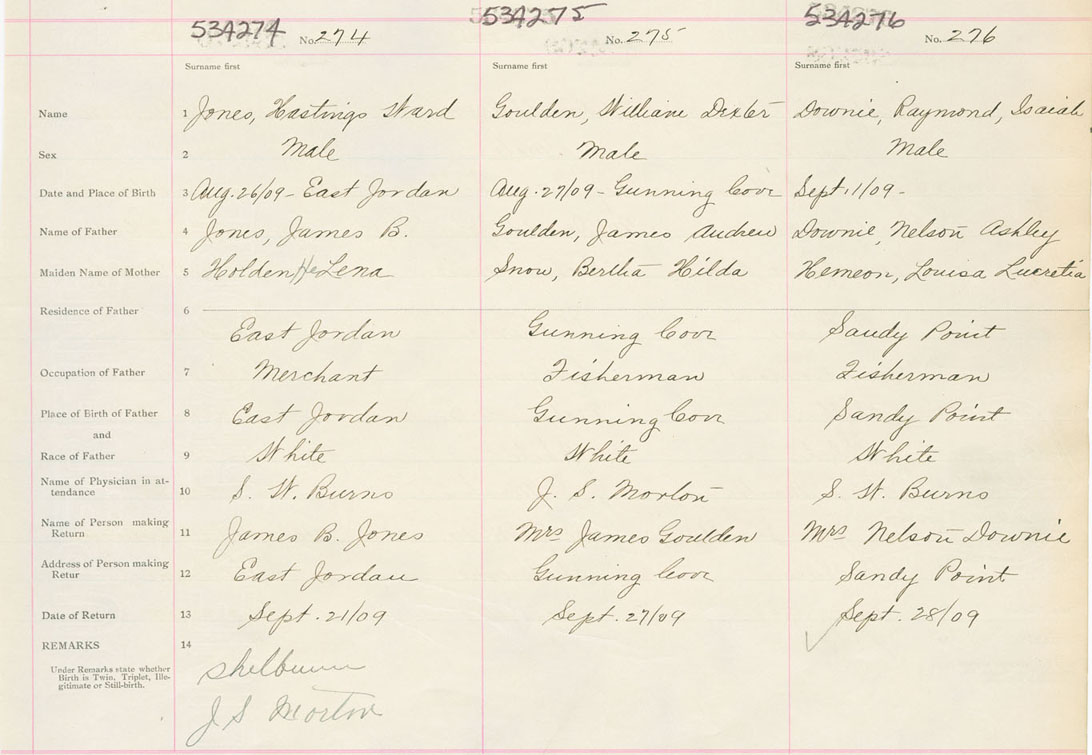 534274 No. 274 534275 No. 275 534276 No. 276
Surname first Surname first Surname first
Name 1 Jones, Hastings Ward Goulden, William Dexter Downie, Raymond, Isaiah
Sex 2 Male Male Male
Date and Place of Birth 3 Aug. 26/09 - East Jordan Aug. 27/09 - Gunning Cove Sept 11/09 -
Name of Father 4 Jones, James B. Goulden, James Andrew Downie, Nelson Ashley
Maiden Name of Mother 5 Holden HeLena Snow, Bertha Hilda Hemeon, Louisa Lucretia
Residence of Father 6
East Jordan Gunning Cove Sandy Point
Occupation of Father 7 Merchant Fisherman Fisherman
Place of Birth of Father 8 East Jordan Gunning Cove Sandy Point
and
Race of Father 9 White White White
Name of Physician in at-
tendance 10 S. W. Burns J. S. Morton S. W. Burns
Name of Person making
Return 11 James B. Jones Mrs James Goulden Mrs Nelson Downie
Address of Person making
Retur 12 East Jordan Gunning Cove Sandy Point
Date of Return 13 Sept. 21/09 Sept. 27/09 Sept. 28/09
REMARKS 14
Under Remarks state whether
Birth is Twin, Triplet, Ille-
gitimate or Still-birth.
Shelburne
J S Morton